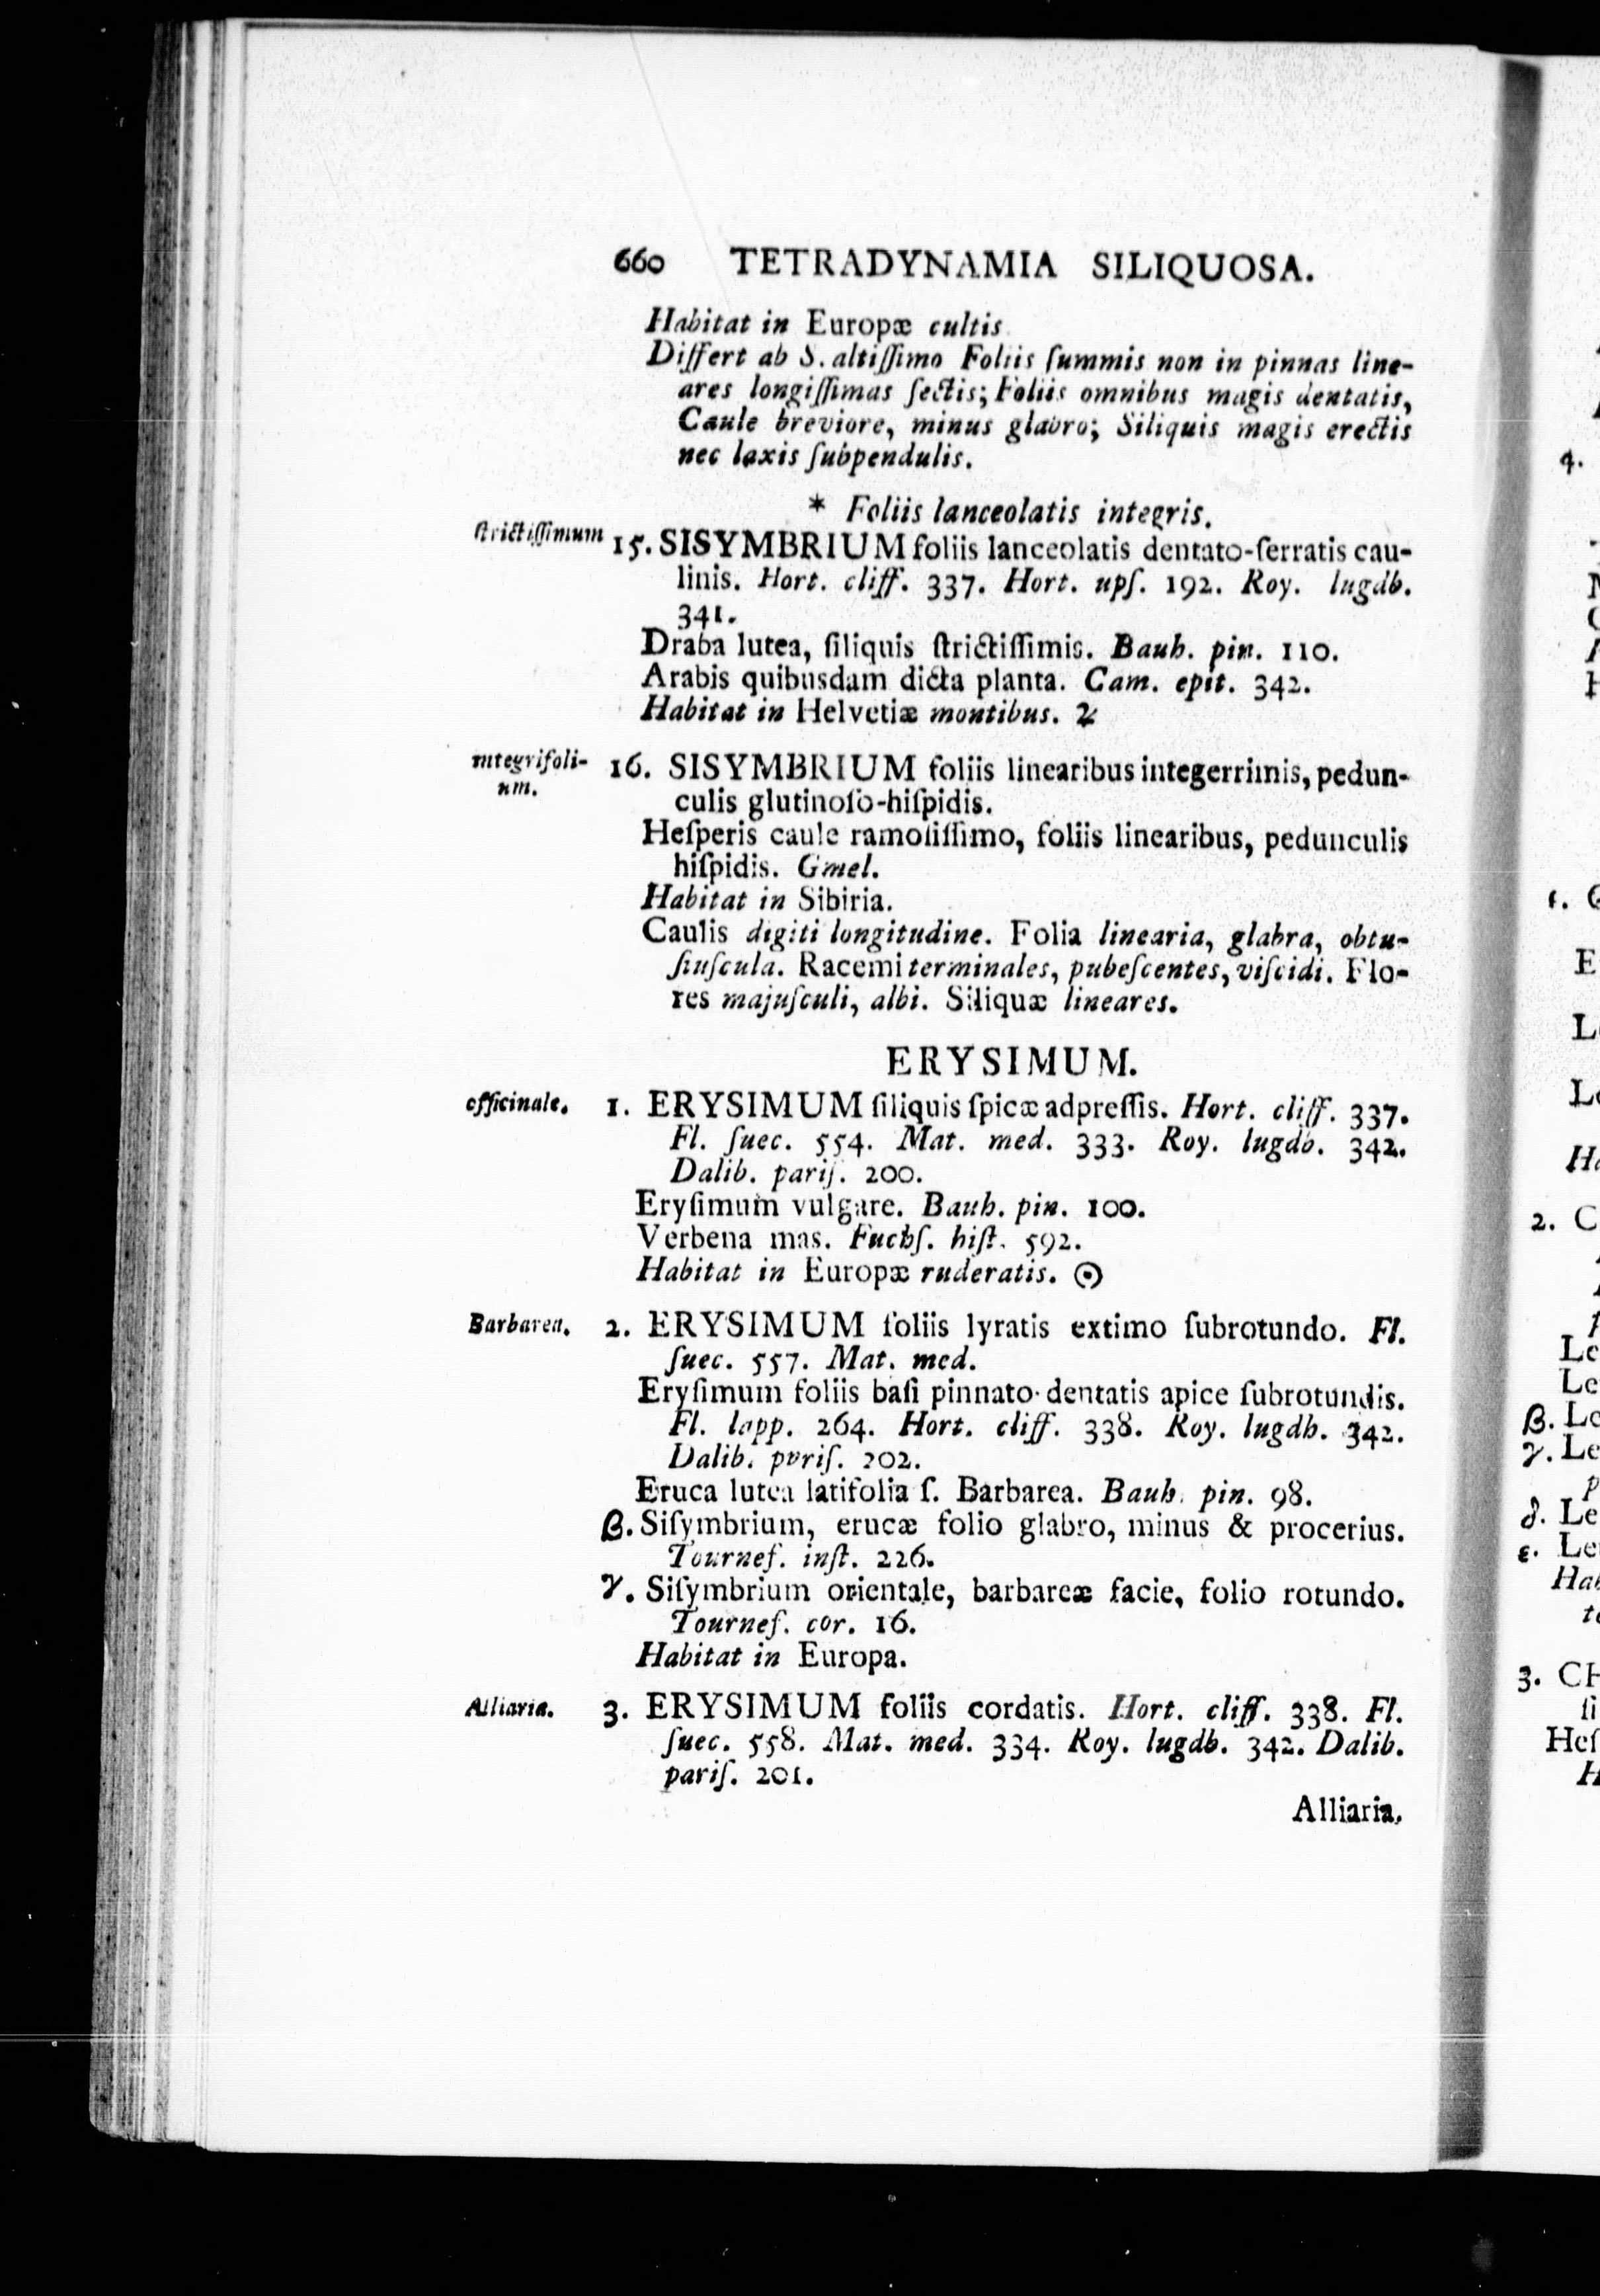 660 TETRADYNAMIA SILIQUOSA.
Habitat in Europæ cultis
Differt ab S. altiſſimo Foliis ſummis non in pinnas line-
ares longiſſimas ſectis; Foliis omnibus magis dentatis,
Caule breviore, minus glabro; Siliquis magis erectis
nec laxis ſubpendulis.
* Foliis lanceolatis integris.
ſtrictiſſimum 15. SISYMBRIUM foliis lanceolatis dentato-ſerratis cau-
linis. Hort. cliff. 337. Hort. upſ. 192. Roy. lugdb.
341.
Draba lutea, ſiliquis ſtrictiſſimis. Bauh. pin. 110.
Arabis quibusdam dicta planta. Cam. epit. 342.
Habitat in Helvetiæ montibus. ♃
integrifoli- 16. SISYMBRIUM foliis linearibus integerrimis, pedun-
um. culis glutinoſo-hiſpidis.
Heſperis caule ramoſiſſimo, foliis linearibus, pedunculis
hiſpidis. Gmel.
Habitat in Sibiria.
Caulis digiti longitudine. Folia linearia, glabra, obtu-
ſiuſcula. Racemi terminales, pubeſcentes, viſcidi. Flo-
res majuſculi, albi. Siliquæ lineares.
ERYSIMUM.
officinale. 1. ERYSIMUM ſiliquis ſpicæ adpreſſis. Hort. cliff. 337.
Fl. ſuec. 554. Mat. med. 333. Roy. lugdb. 342.
Dalib. pariſ. 200.
Eryſimum vulgare. Bauh. pin. 100.
Verbena mas. Fuchſ. hiſt. 592.
Habitat in Europæ ruderatis. ☉
Barbarea. 2. ERYSIMUM foliis lyratis extimo ſubrotundo. Fl.
ſuec. 557. Mat. med.
Eryſimum foliis baſi pinnato-dentatis apice ſubrotundis.
Fl. lapp. 264. Hort. cliff. 338. Roy. lugdb. 342.
Dalib. pariſ. 202.
Eruca lutea latifolia ſ. Barbarea. Bauh. pin. 98.
β. Siſymbrium, erucæ folio glabro, minus & procerius.
Tourneſ. inſt. 226.
γ. Siſymbrium orientale, barbareæ facie, folio rotundo.
Tourneſ. cor. 16.
Habitat in Europa.
Alliaria. 3. ERYSIMUM foliis cordatis. Hort. cliff. 338. Fl.
ſuec. 558. Mat. med. 334. Roy. lugdb. 342. Dalib.
pariſ. 201.
Alliaria.